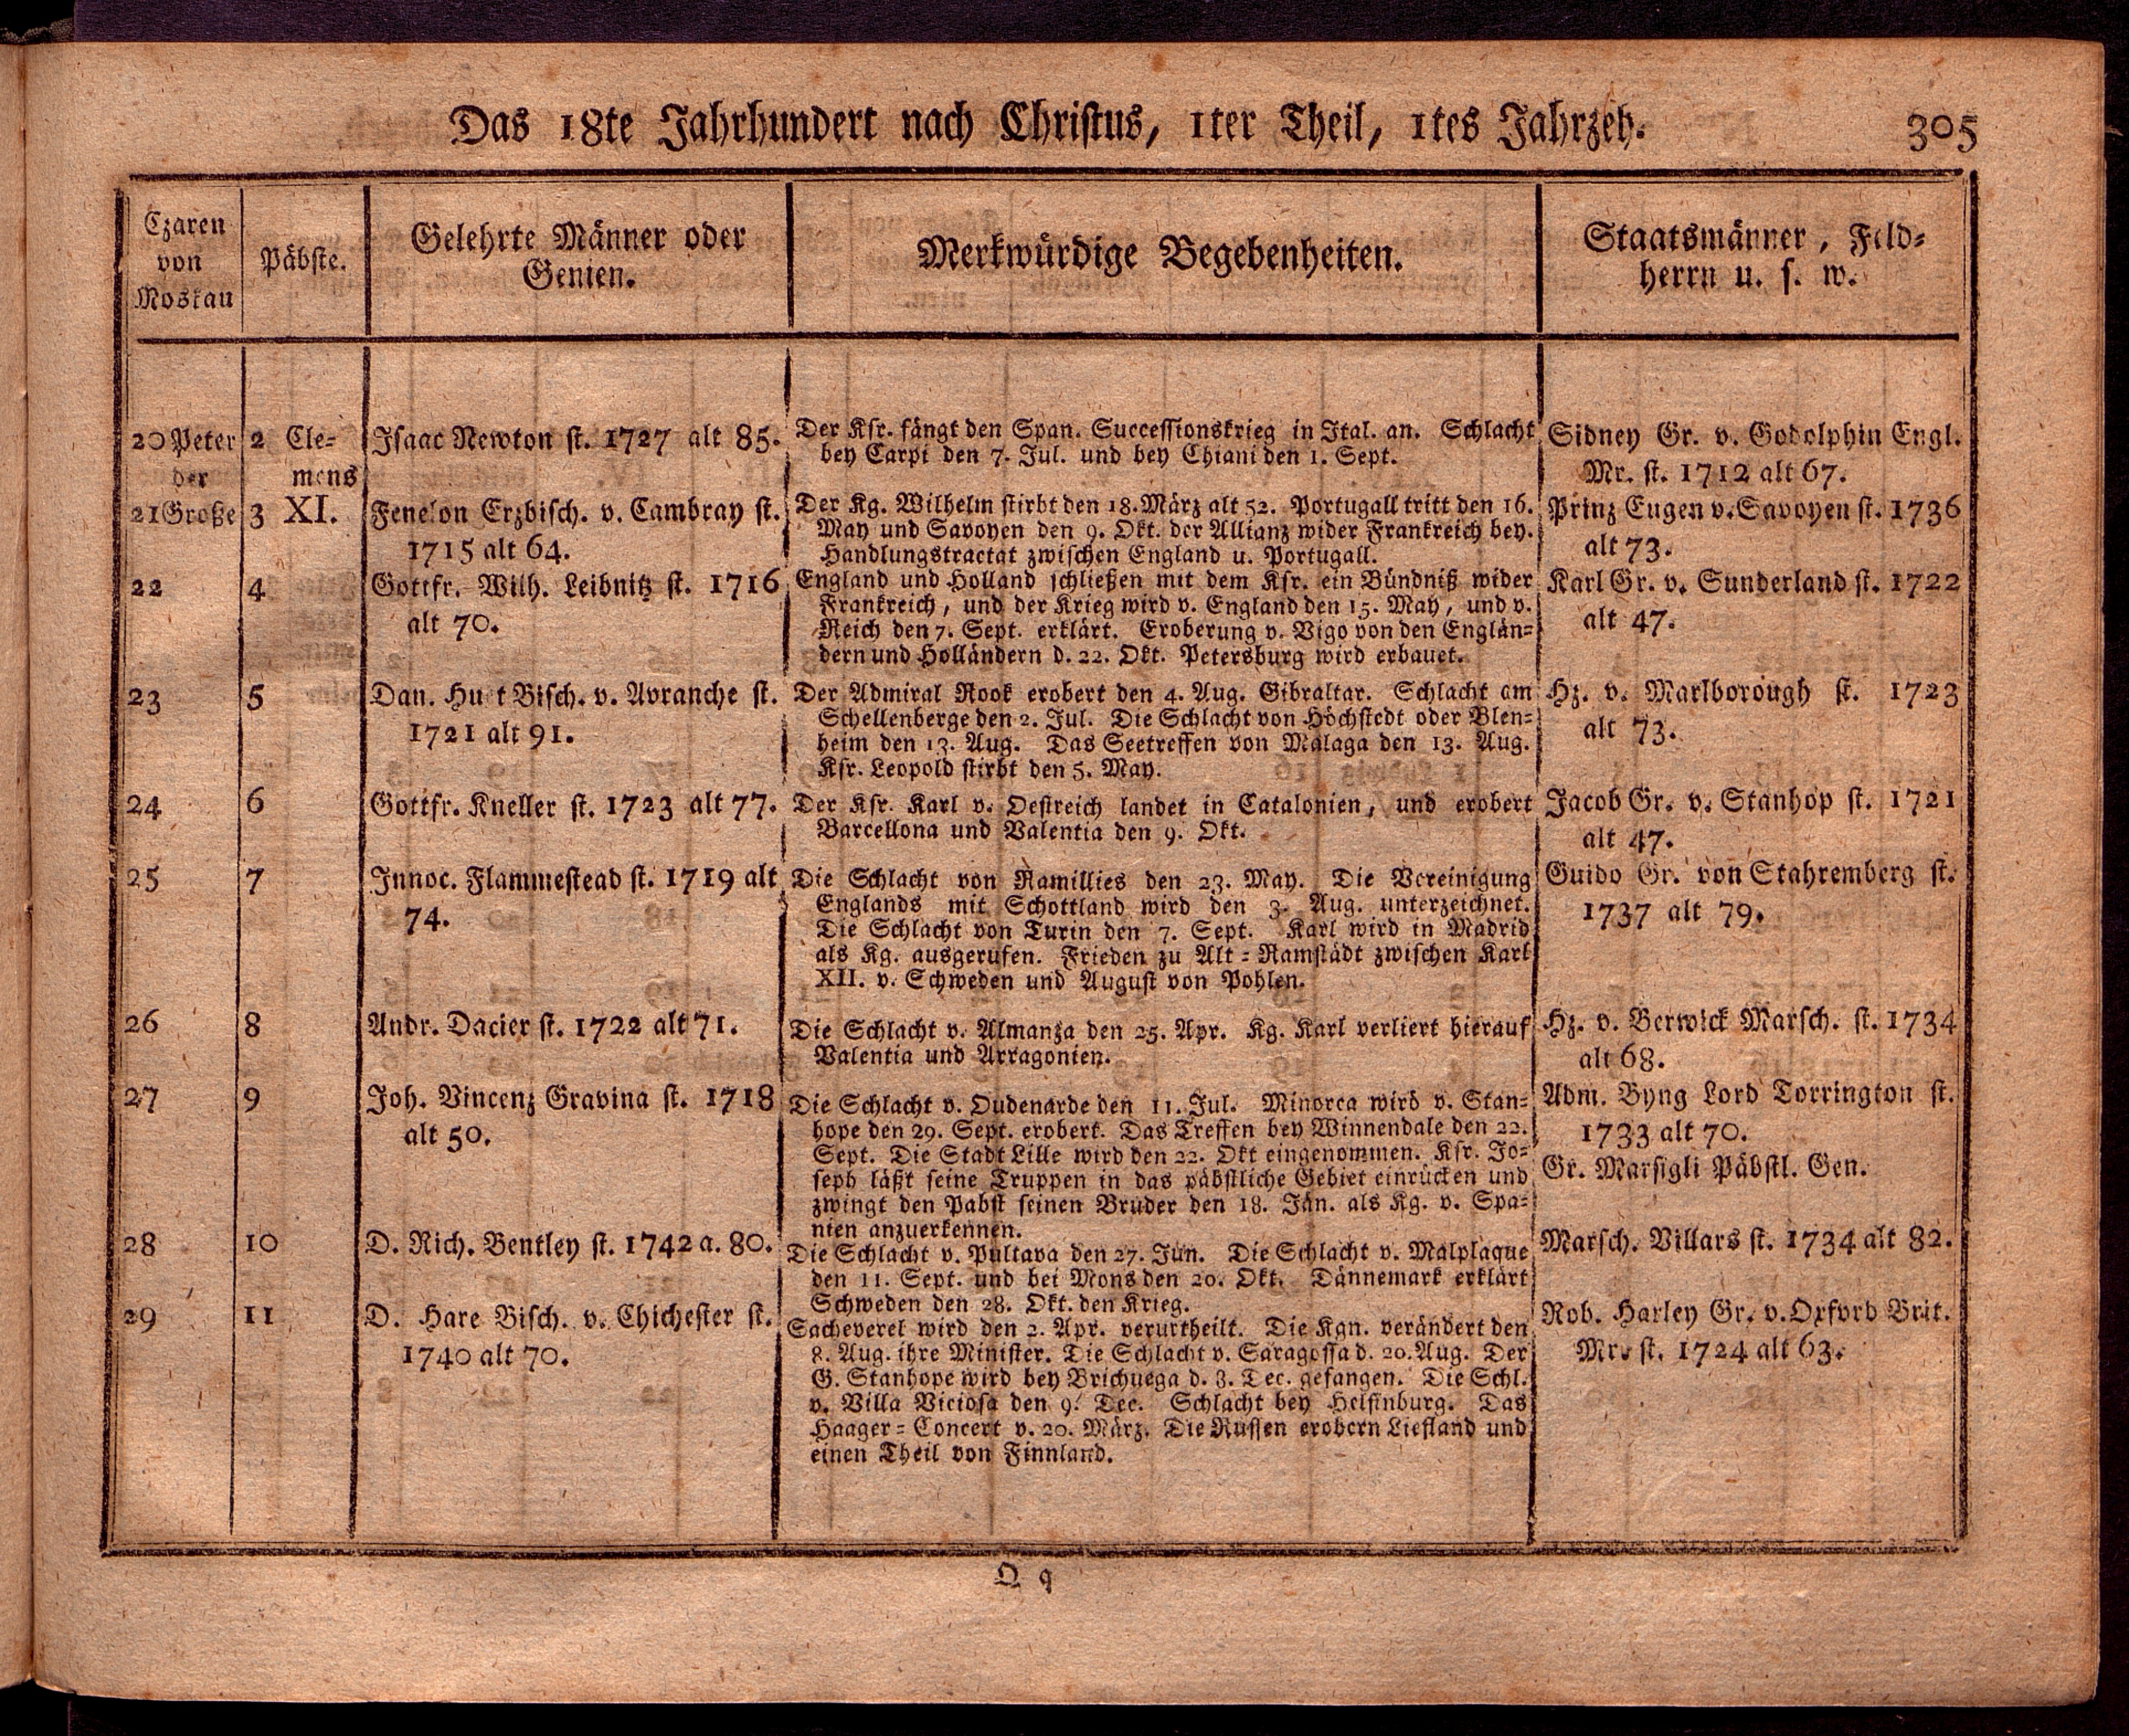 Das 18te Jahrhundert nach Christus, 1ter Theil, 1tes Jahrzeh.
305
Czaren
von
Moskau
Päbste.
Gelehrte Männer oder
Genien.
Merkwürdige Begebenheiten.
Staatsmänner, Feld-
herrn u. s. w.
20 Peter
der
21 Große
22
23
24
25
26
27
28
29
2 Cle-
mens
3 XI.
4
5
6
7
8
9
10
11
Isaac Newton st. 1727 alt 85.
Fenelon Erzbisch. v. Cambray st.
1715 alt 64.
Gottfr. Wilh. Leibnitz st. 1716
alt 70.
Dan. Huet Bisch. v. Avranche st.
1721 alt 91.
Gottfr. Kneller st. 1723 alt 77.
Innoc. Flammestead st. 1719 alt
74.
Andr. Dacier st. 1722 alt 71.
Joh. Vincenz Gravina st. 1718
alt 50.
D. Rich. Bentley st. 1742 a. 80.
D. Hare Bisch. v. Chichester st.
1740 alt 70.
Der Ksr. fängt den Span. Successionskrieg in Ital. an. Schlacht
bey Carpi den 7. Jul. und bey Chiani den 1. Sept.
Der Kg. Wilhelm stirbt den 18. März alt 52. Portugall tritt den 16.
May und Savoyen den 9. Okt. der Allianz wider Frankreich bey.
Handlungstractat zwischen England u. Portugall.
England und Holland schließen mit dem Ksr. ein Bündniß wider
Frankreich, und der Krieg wird v. England den 15. May, und v.
Reich den 7. Sept. erklärt. Eroberung v. Vigo von den Englän-
dern und Holländern d. 22. Okt. Petersburg wird erbauet.
Der Admiral Rook erobert den 4. Aug. Gibraltar. Schlacht am
Schellenberge den 2. Jul. Die Schlacht von Höchstedt oder Blen-
heim den 13. Aug. Das Seetreffen von Malaga den 13. Aug.
Ksr. Leopold stirbt den 5. May.
Der Ksr. Karl v. Oestreich landet in Catalonien, und erobert
Barcellona und Valentia den 9. Okt.
Die Schlacht von Ramillies den 23. May. Die Vereinigung
Englands mit Schottland wird den 3. Aug. unterzeichnet.
Die Schlacht von Turin den 7. Sept. Karl wird in Madrid
als Kg. ausgerufen. Frieden zu Alt-Ramstädt zwischen Karl
XII. v. Schweden und August von Pohlen.
Die Schlacht v. Almanza den 25. Apr. Kg. Karl verliert hierauf
Valentia und Arragonien.
Die Schlacht v. Oudenarde den 11. Jul. Minorca wird v. Stan-
hope den 29. Sept. erobert. Das Treffen bey Winnendale den 22.
Sept. Die Stadt Lille wird den 22. Okt eingenommen. Ksr. Jo-
seph läßt seine Truppen in das päbstliche Gebiet einrücken und
zwingt den Pabst seinen Bruder den 18. Jän. als Kg. v. Spa-
nien anzuerkennen.
Die Schlacht v. Pultava den 27. Jun. Die Schlacht v. Malplaque
den 11. Sept. und bei Mons den 20. Okt. Dännemark erklärt
Schweden den 28. Okt. den Krieg.
Sacheverel wird den 2. Apr. verurtheilt. Die Kgn. verändert den
8. Aug. ihre Minister. Die Schlacht v. Saragossa d. 20. Aug. Der
G. Stanhope wird bey Brichuega d. 8. Dec. gefangen. Die Schl.
v. Villa Viciosa den 9. Dec. Schlacht bey Helsinburg. Das
Haager-Concert v. 20. März. Die Russen erobern Liefland und
einen Theil von Finnland.
Sidney Gr. v. Godolphin Engl.
Mr. st. 1712 alt 67.
Prinz Eugen v. Savoyen st. 1736
alt 73.
Karl Gr. v. Sunderland st. 1722
alt 47.
Hz. v. Marlborough st. 1723
alt 73.
Jacob Gr. v. Stanhop st. 1721
alt 47.
Guido Gr. von Stahremberg st.
1737 alt 79.
Hz. v. Berwick Marsch. st. 1734
alt 68.
Adm. Byng Lord Torrington st.
1733 alt 70.
Gr. Marsigli Päbstl. Gen.
Marsch. Villars st. 1734 alt 82.
Rob. Harley Gr. v. Oxford Brit.
Mr. st. 1724 alt 63.
Q q